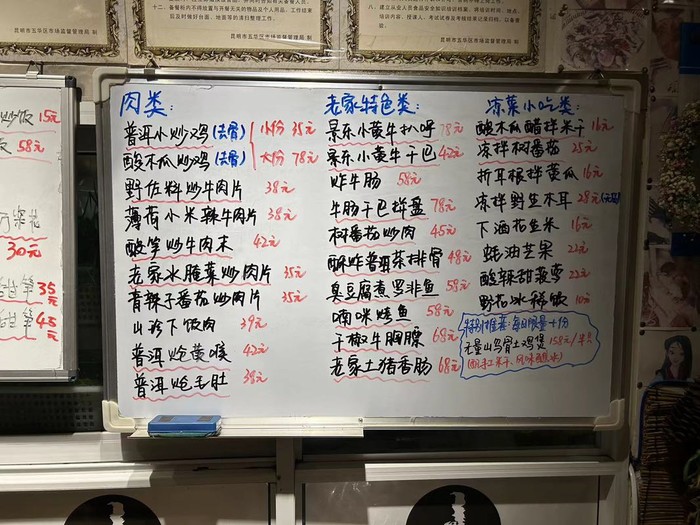 昆明市五华区市场监督管理局 制
昆明市五华区市场监督管理局 制
炒饭 15元
58元
30元
35元
45元
肉类:
普洱小炒鸡(去骨) 小份 35元
酸木瓜炒鸡(去骨) 大份 78元
野佐料炒牛肉片 38元
薄荷小米辣牛肉片 38元
酸笋炒牛肉末 42元
老家水腌菜炒肉片 35元
青辣子番茄炒肉片 35元
山珍下饭肉 39元
普洱炝黄喉 42元
普洱炝毛肚 38元
老家特色类:
景东小黄牛扒呼 78元
景东小黄牛干巴 42元
炸牛肠 58元
牛肠干巴拼盘 78元
树番茄炒肉 45元
酥炸普洱茶排骨 48元
臭豆腐煮罗非鱼 58元
喃咪烤鱼 58元
干椒牛胸膘 68元
老家土猪香肠 68元
凉菜小吃类:
酸木瓜醋拌米干 16元
凉拌树番茄 25元
折耳根拌黄瓜 16元
凉拌野生木耳 28元
下酒花生米 16元
蚝油芒果 22元
酸辣甜菠萝 22元
野花冰稀饭 10元
特别推荐:每日限量十份
无量山乌骨土鸡煲 158元/半只
(配扣米干、风味蘸水)